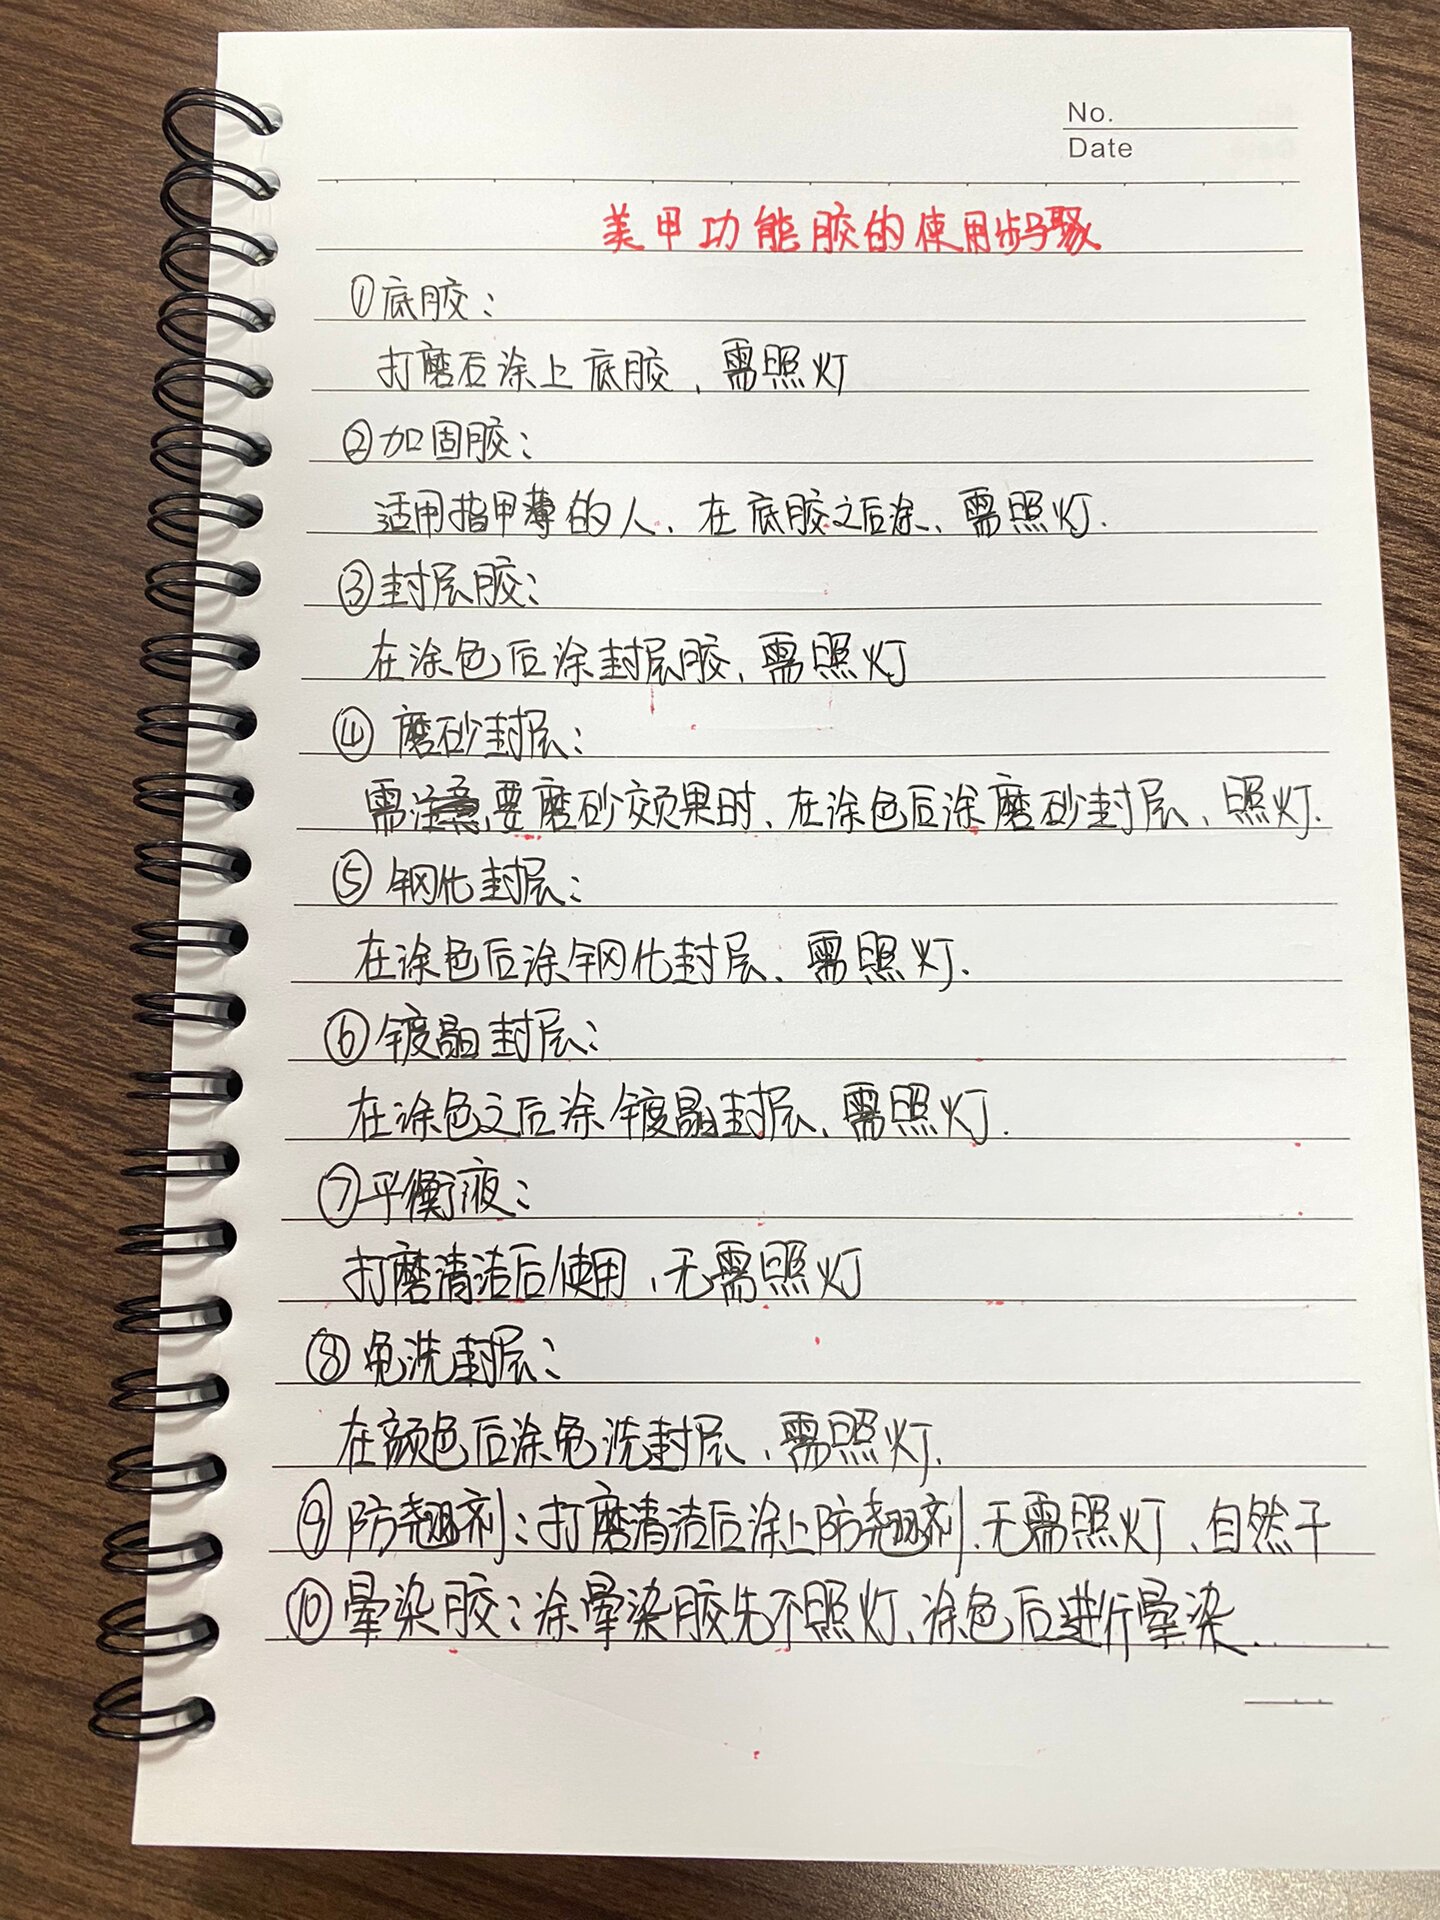 No.
Date
美甲功能胶的使用步骤
①底胶：
打磨后涂上底胶、需照灯
②加固胶：
适用指甲薄的人、在底胶之后涂、需照灯.
③封层胶：
在涂色后涂封层胶、需照灯
④ 磨砂封层：
需注意要磨砂效果时、在涂色后涂磨砂封层、照灯.
⑤ 钢化封层：
在涂色后涂钢化封层、需照灯.
⑥镀晶封层：
在涂色之后涂镀晶封层、需照灯.
⑦平衡液：
打磨清洁后使用、无需照灯
⑧免洗封层：
在颜色后涂免洗封层、需照灯.
⑨防翘剂：打磨清洁后涂上防翘剂、无需照灯、自然干
⑩晕染胶：涂晕染胶先不照灯、涂色后进行晕染.